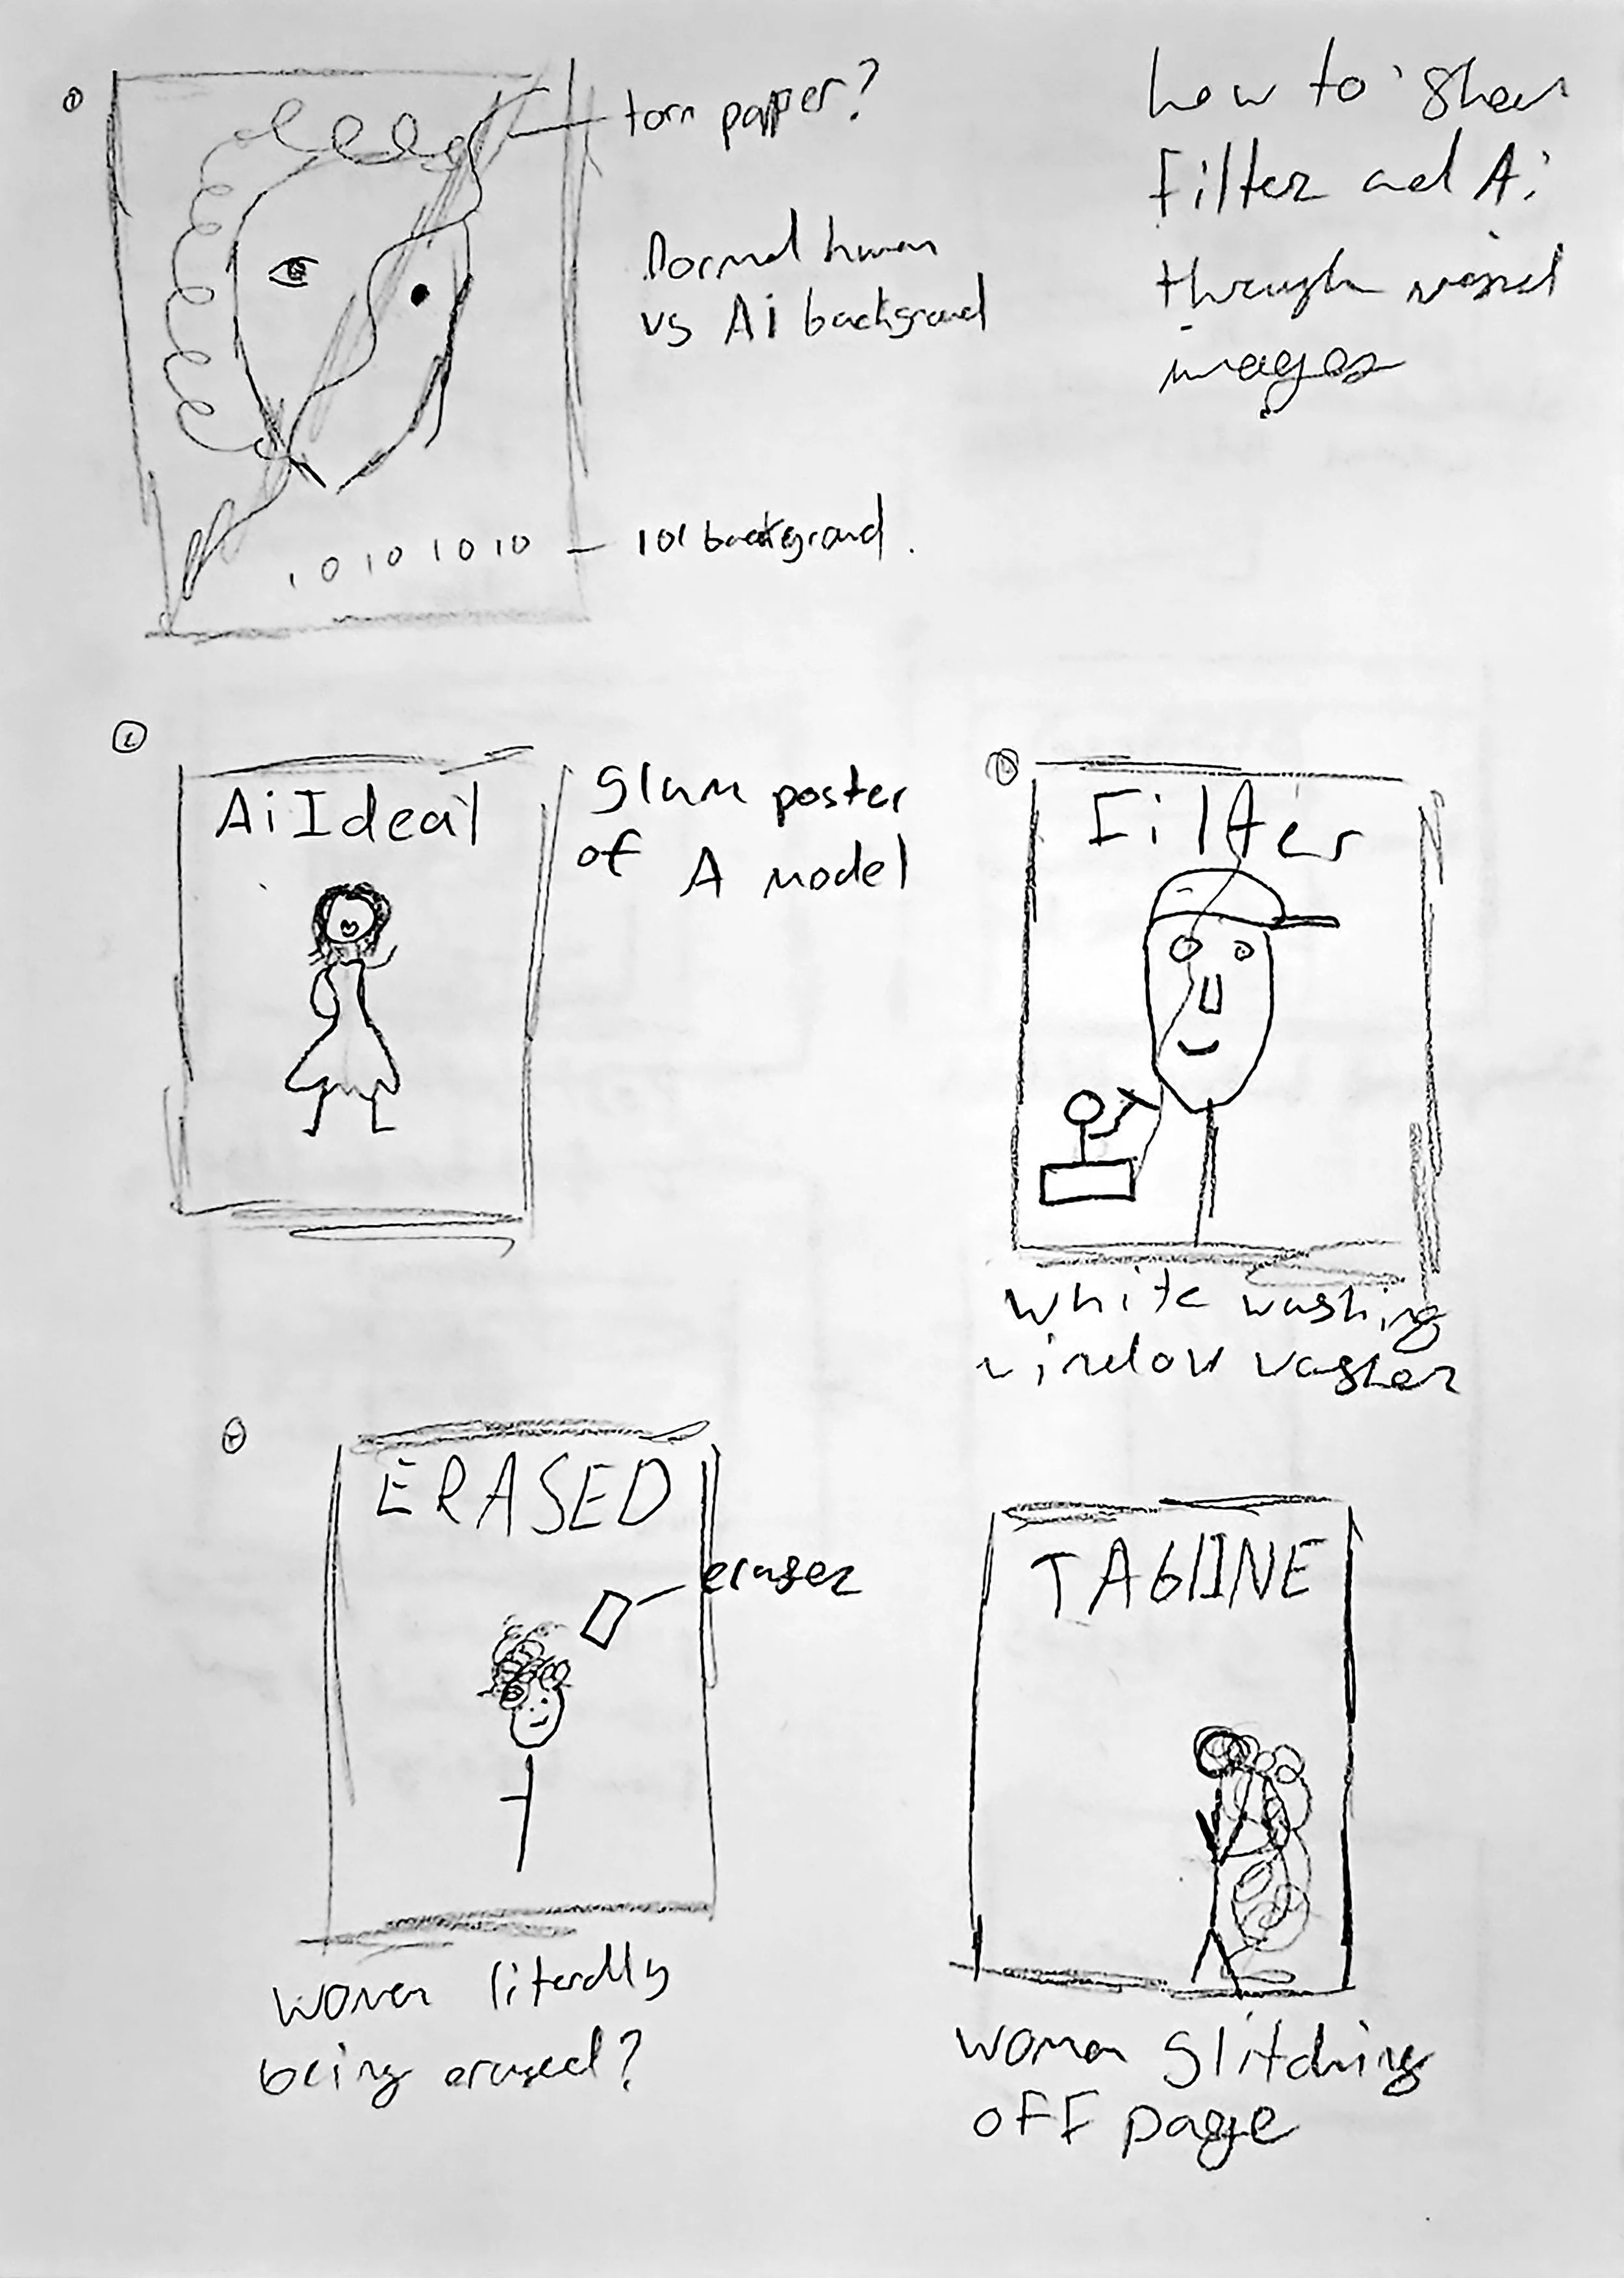 ①
torn papper?
how to show
Filter and Ai
through visual
images
Normal human
vs Ai background
1010 1010 10
101 background.
②
Ai Ideal
Glam poster
of A model
Filter
white washing
window washer
ERASED
eraser
women literally
being erased?
TAGlINE
women glitching
off page